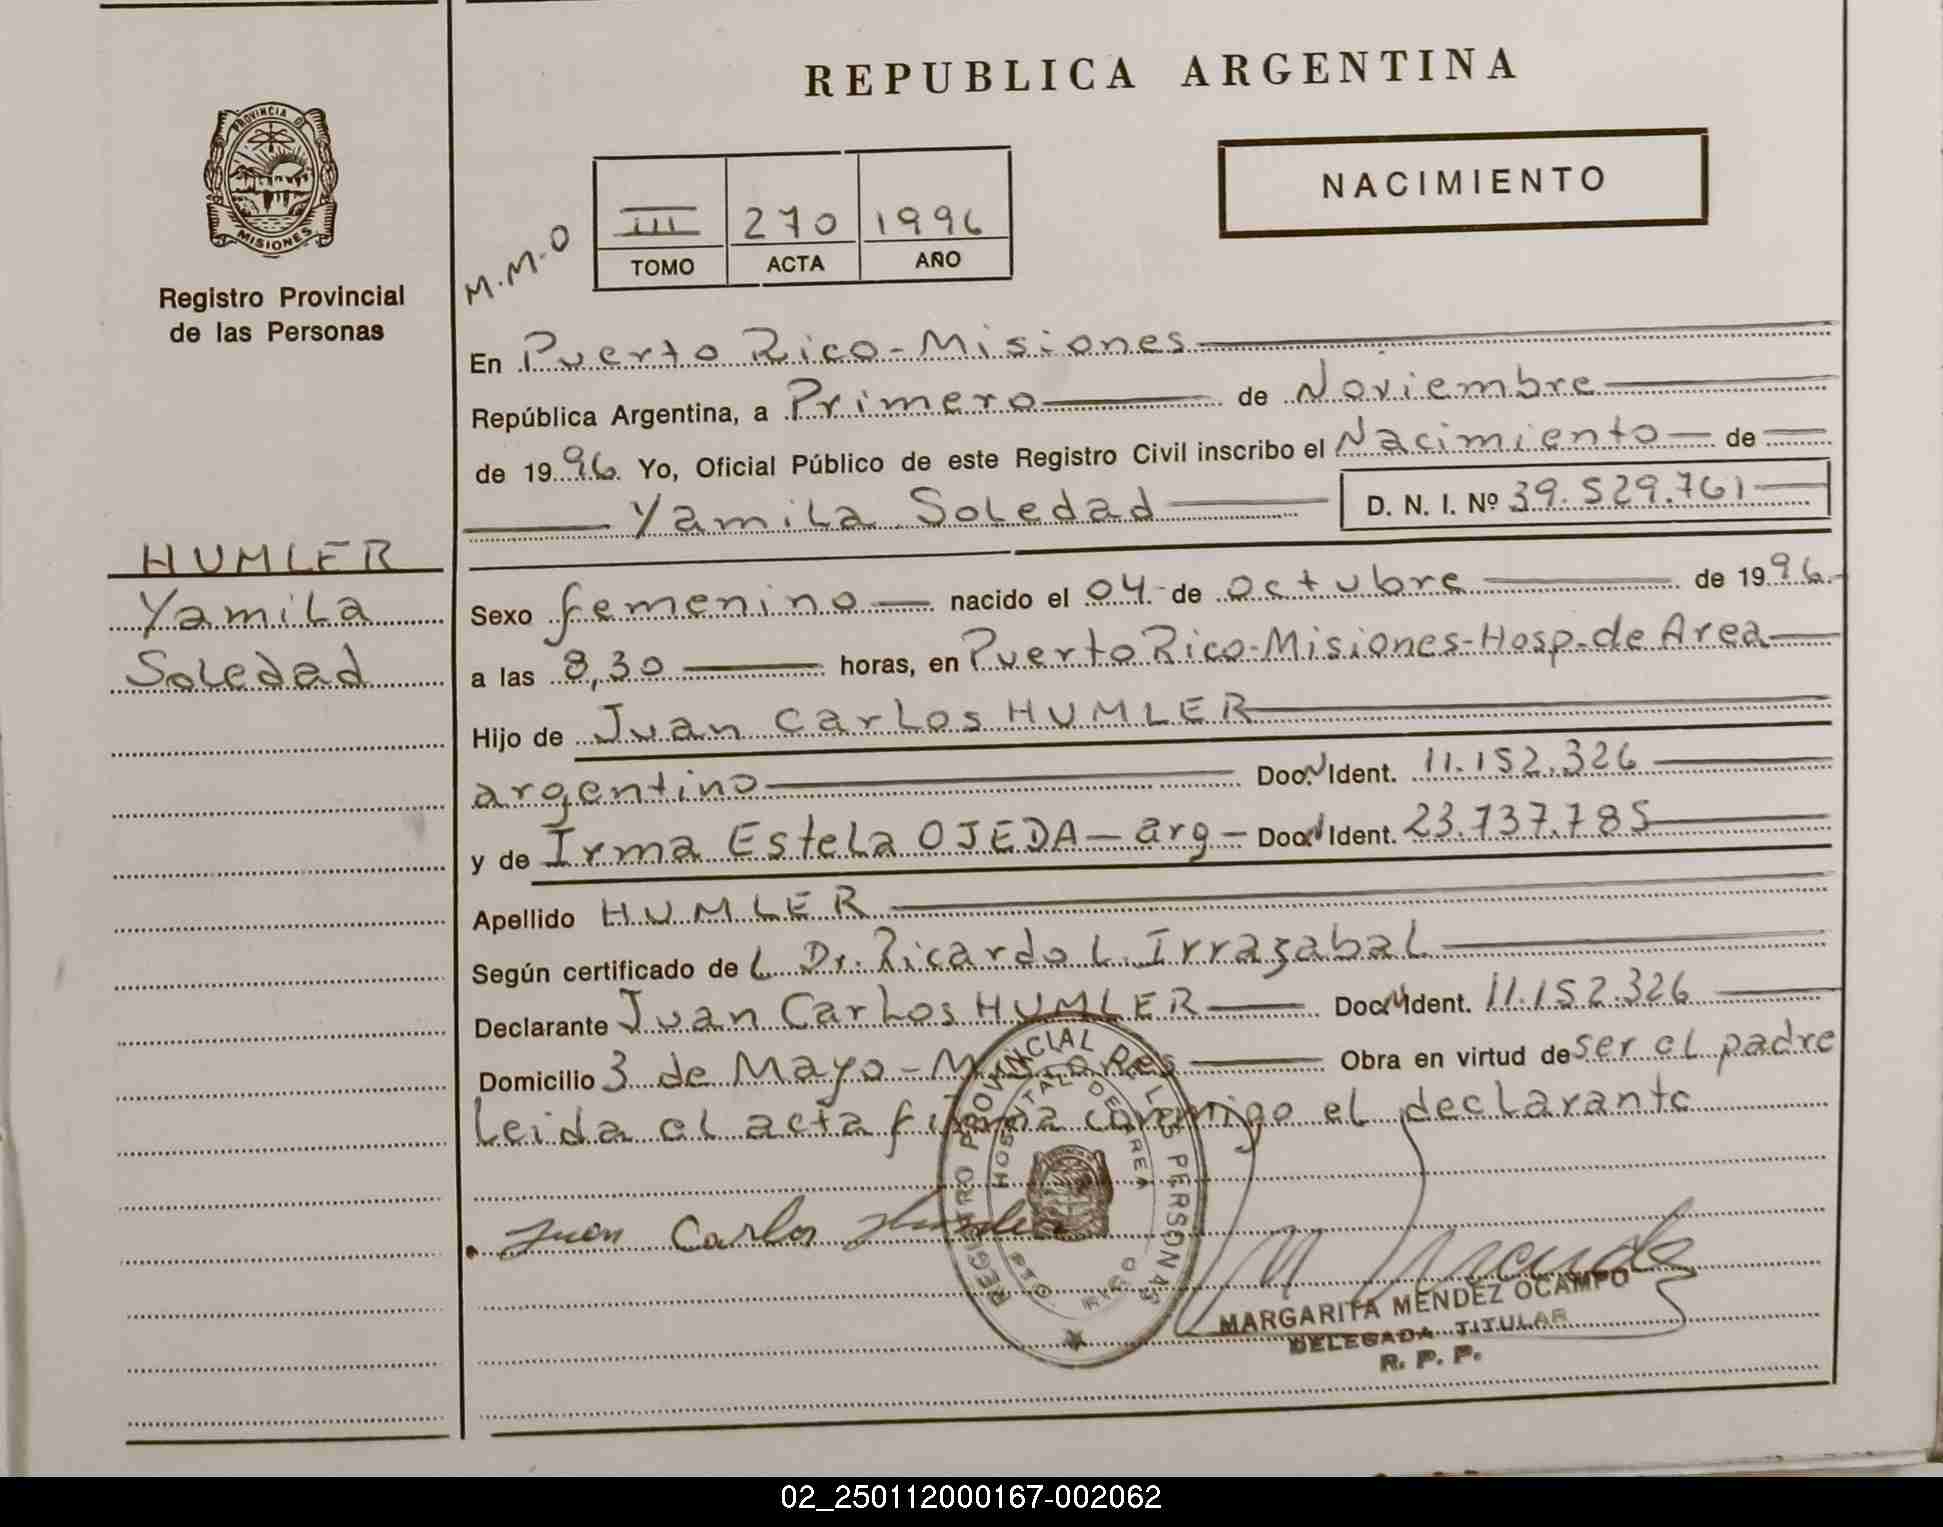 REPUBLICA ARGENTINA
PROVINCIA DE
MISIONES
Registro Provincial
de las Personas
NACIMIENTO
M.M.O
III 270 1996
TOMO ACTA AÑO
En Puerto Rico-Misiones
República Argentina, a Primero de Noviembre
de 1996. Yo, Oficial Público de este Registro Civil inscribo el Nacimiento de
Yamila Soledad D. N. I. Nº 39.529.761
HUMLER
Yamila
Soledad
Sexo femenino nacido el 04 de octubre de 1996
a las 8,30 horas, en Puerto Rico-Misiones-Hosp.de Area
Hijo de Juan Carlos HUMLER
argentino Doc. Ident. 11.152.326
y de Irma Estela OJEDA-arg- Doc. Ident. 23.737.785
Apellido HUMLER
Según certificado de L Dr. Ricardo L. Irrazabal
Declarante Juan Carlos HUMLER Doc. Ident. 11.152.326
Domicilio 3 de Mayo-Misiones Obra en virtud de ser el padre
Leida el acta firma conmigo el declarante
REGISTRO PROVINCIAL DE LAS PERSONAS
HOSPITAL DE AREA
PTO. RICO
Juan Carlos Humler
MARGARITA MENDEZ OCAMPO
DELEGADA TITULAR
R. P. P.
02_250112000167-002062